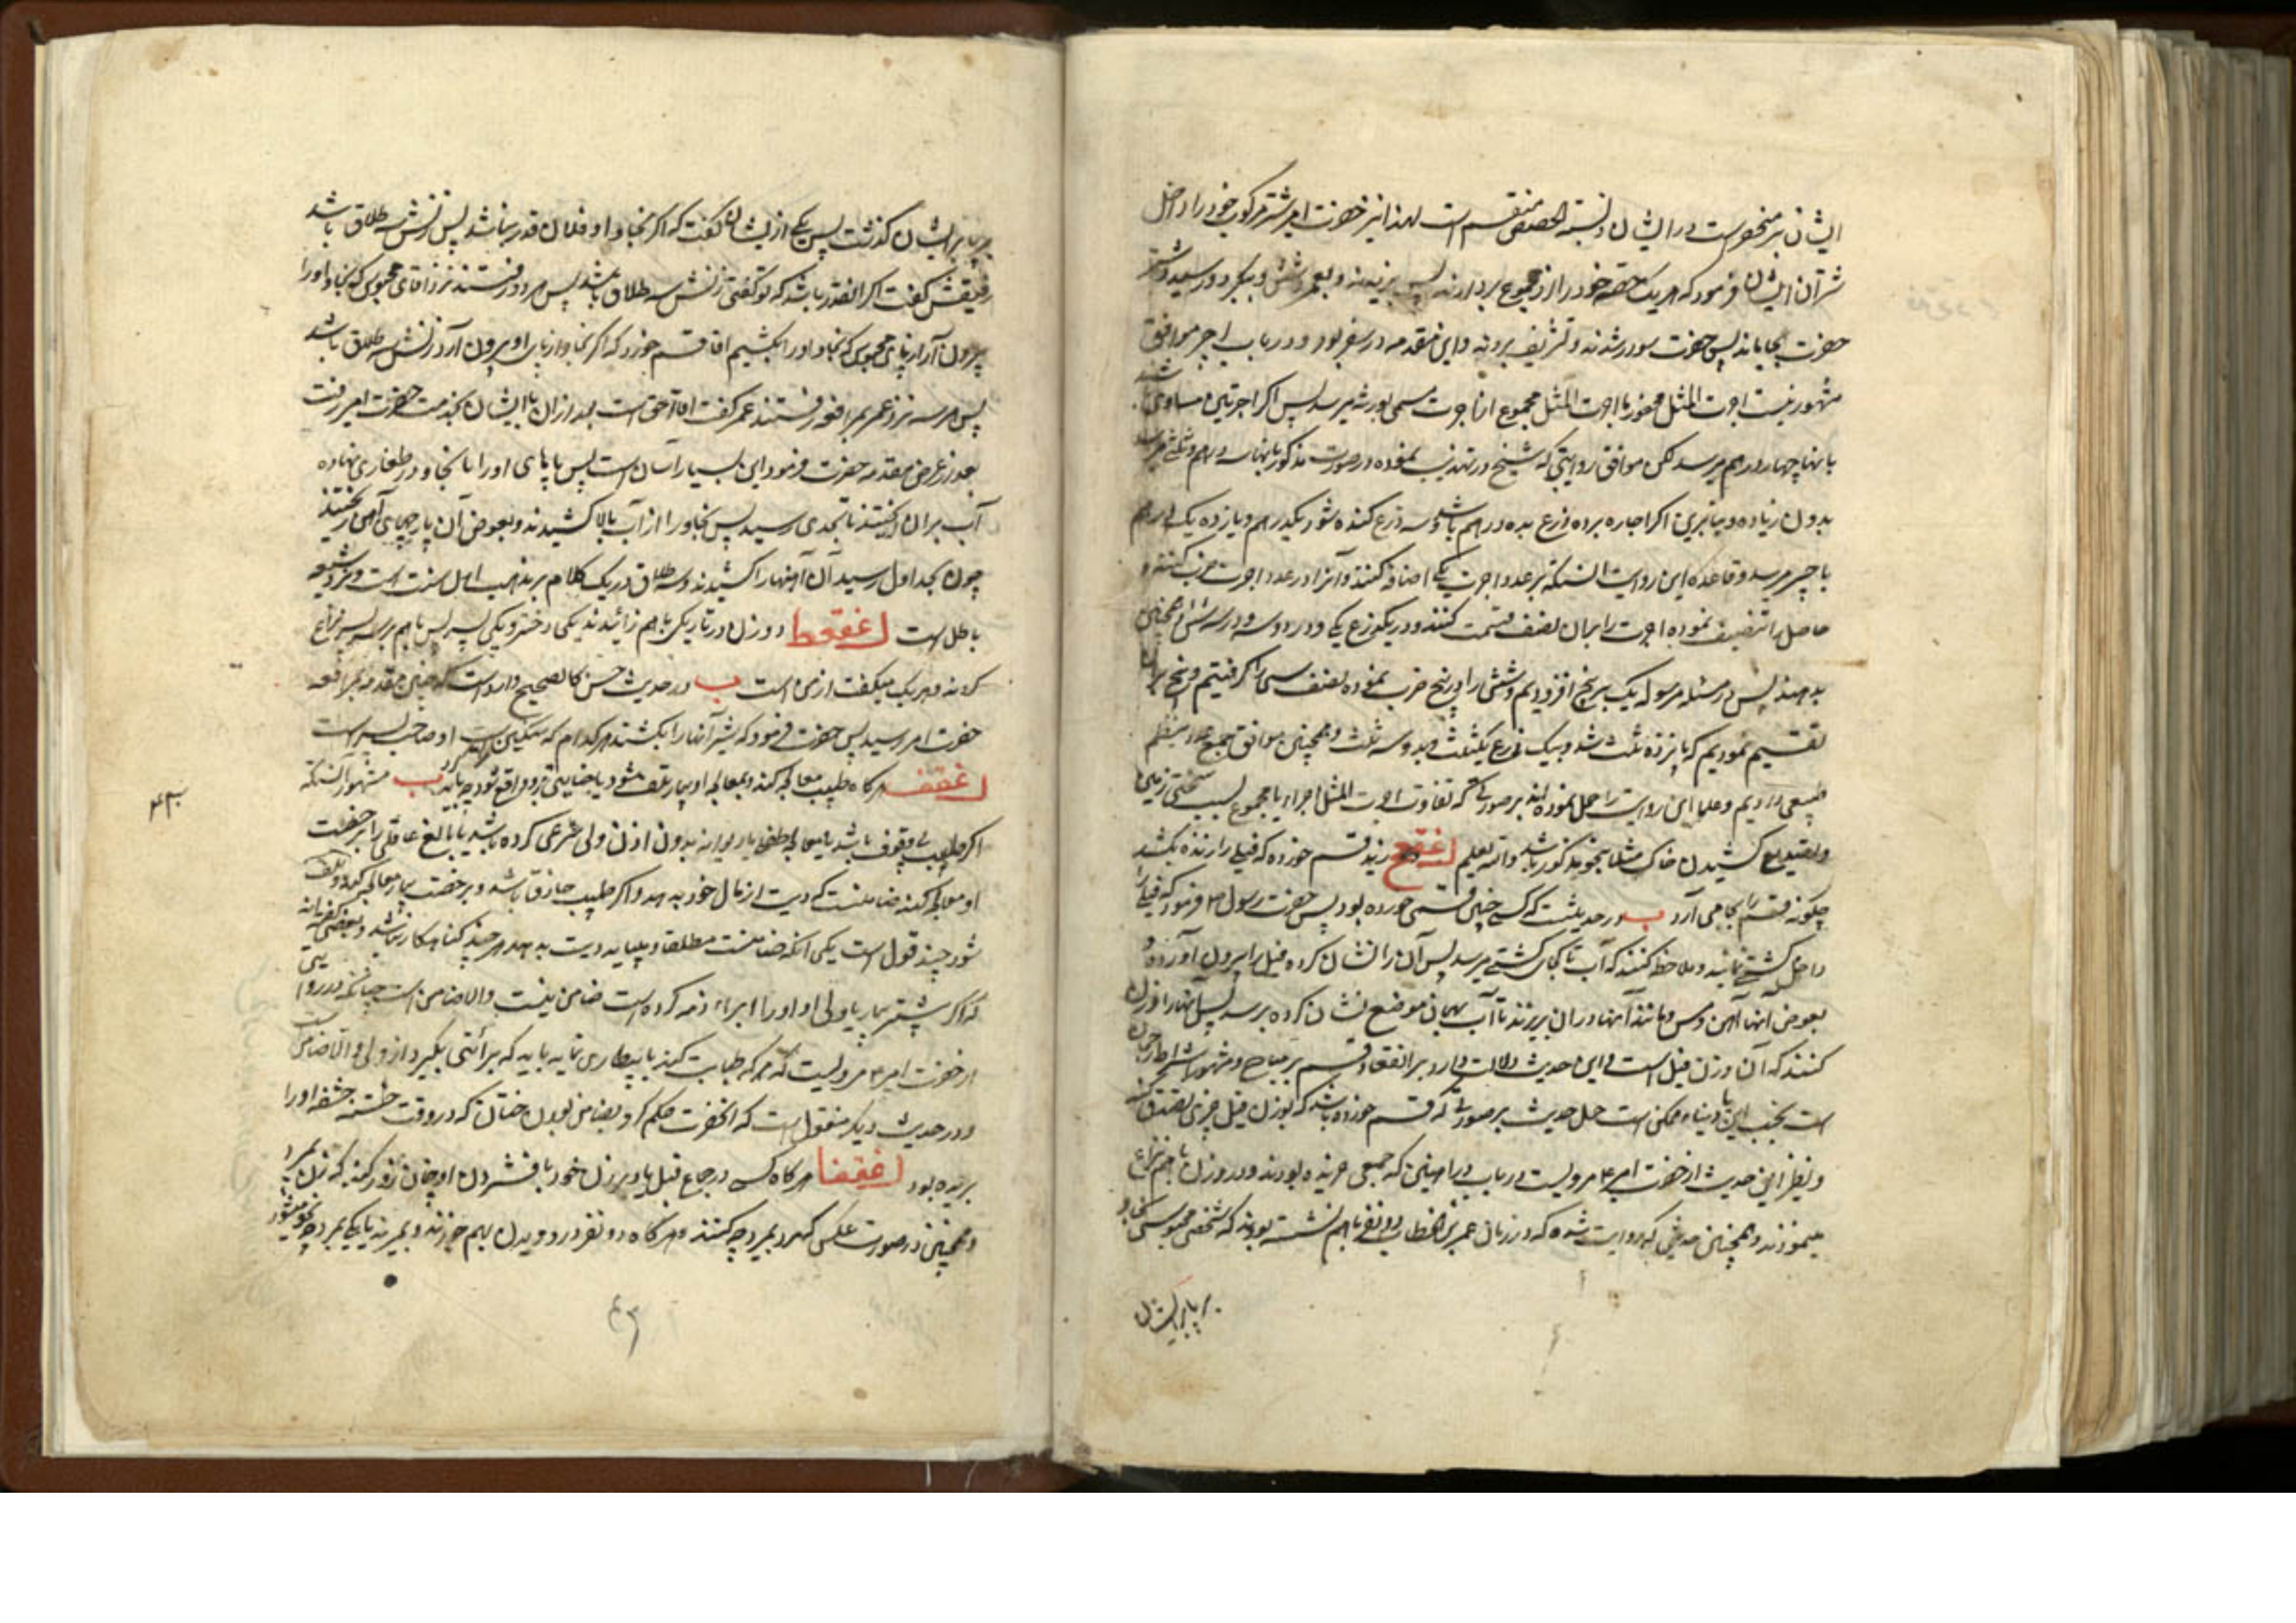 ایشان نیز منحصر است در ایشان و نسبة حصص منقسم است لهذا نیز حضرت امیر شتر مرکوب خود را داخل
شتران ایشان فرمود که هر یک حصه خود را از مجموع بردارند پس
حضرت بجا ماند پس حضرت سوار شدند و تشریف بردند و این مقدمه در سفر بود و در باب اجیر موافق
مشهور نسبت اجرت المثل محفور با اجرت المثل مجموع از اجرت مسمی بورثه میرسد پس اگر اجرتین مساوی
باینها چهار درهم میرسد لکن موافق روایتی که شیخ در تهذیب نموده در صورت مذکور باینها سه درهم و ثلثی میرسد
بدون زیاده و بنابرین اگر اجاره برده ذرع بده درهم باشد و سه ذرع کنده شود یکدرهم و یازده یک درهم
باجیر میرسد و قاعده این روایت آنستکه بر عدد اجرت یکی اضافه کنند و آنرا در عدد اجرت ضرب کنند و
حاصل را تنصیف نموده اجرت را بر آن نصف قسمت کنند و در یکذرع یکی و در دو سه و در سه شش همچنین
بدهند پس در مسئله مرسوله یک بر پنج افزودیم و شش را در پنج ضرب نموده نصف سی را گرفتیم و پنج بر آن
تقسیم نمودیم که پانزده ثلث شد و بیک ذرع یکثلث و بدو سه ثلث و همچنین موافق جمع عدد بنظم
طبیعی دادیم و علما این روایت را حمل نموده اند بر صورتی که تفاوت اجرت المثل اجزاء با مجموع بسبب سختی زمین
و تصدیع کشیدن خاک مثلا بنحو مذکور باشد والله یعلم لغقح زید قسم خورده که فیلی را زنده بکشد
چگونه قسم را بجا می آرد ب در حدیثست که کسی چنین قسمی خورده بود پس حضرت رسول ص فرمود که فیل را
داخل کشتی نمایند و ملاحظه کنند که آب تا کجای کشتی میرسد پس آن را نشان کرده فیل را بیرون آورده و
بعوض آنها آهن و مس و مانند آنها در آن بریزند تا آب بهمان موضع نشان کرده برسد پس آنها را وزن
کنند که آن وزن فیل است و این حدیث دلالت دارد بر انعقاد قسم بر مباح و مشهور اشتراط رجحان
است بحسب دین یا دنیا و ممکن است حمل حدیث بر صورتی که قسم خورده باشد که بوزن فیل چیزی تصدق کند
و نظیر این حدیث از حضرت امیر ع مرویست در باب دراهمی که جمعی خریده بودند و در وزن باهم نزاع
مینمودند و همچنین حدیثی که روایت شده که در زمان عمر بن الخطاب دو نفر باهم نشسته بودند که شخص محبوسی کنجاو
بر پا بر ایشان
بر پا بر ایشان گذشت پس یکی از ایشان گفت که اگر کنجاو او فلان قدر نباشد پس زنش سه طلاق باشد
رفیقش گفت اگر آنقدر باشد که تو گفتی زنش سه طلاق باشد پس هر دو رفتند نزد آقای محبوس که کنجاو او را
بیرون آر از پای محبوس که کنجاو او را بکشیم آقا قسم خورد که اگر کنجاو از پای او بیرون آرد زنش سه طلاق باشد
پس هر سه نزد عمر بمرافعه رفتند عمر گفت آقا احق است بعد از آن با ایشان بخدمت حضرت امیر رفت
بعد از عرض مقدمه حضرت فرمود این بسیار آسان است پس پای او را با کنجاو در طغاری نهاده
آب بر آن ریختند تا بحدی رسید پس کنجاو را از آب بالا کشیدند و بعوض آن پارچهای آهن ریختند
چون بحد اول رسید آن آهنها را کشیدند و سه طلاق در یک کلام بر مذهب اهل سنت است و نزد شیعه
باطل است لغقعط دو زن در تاریکی باهم زائیدند یکی دختر و یکی پسر پس باهم بر سر پسر نزاع
کردند و هر یک میگفت از من است ب در حدیث حسن کالصحیح وارد است که چنین مقدمه بمرافعه
حضرت امیر رسید پس حضرت فرمود که شیر آنها را بکشند هر کدام که سنگین تر است او صاحب پسر است
لغقف هر گاه طبیب معالجه کند و بمعالجه او بیمار تلف شود یا جنایتی بر او واقع شود چه باید کرد ب مشهور آنستکه
اگر طبیب بیوقوف باشد یا معالجه طفل یا دیوانه بدون اذن ولی شرعی کرده باشد یا بالغ عاقلی را بیرخصت
او معالجه کند ضامنست که دیت از مال خود بدهد و اگر طبیب حاذق باشد و برخصت بیمار معالجه کند و تلف
شود چند قول است یکی آنکه ضامنست مطلقا و میباید دیت بدهد هر چند گناهکار نباشد و بعضی گفته اند
که اگر بیشتر بیمار یا ولی او او را ابراء ذمه کرده است ضامن نیست والا ضامن است چنانکه در روایتی
از حضرت امیر ع مرویست که هر که طبابت کند یا بیطاری نماید باید که برائتی بگیرد از ولی والا ضامن است
و در حدیث دیگر منقول است که آنحضرت حکم کرد بضامن بودن ختان که در وقت ختنه حشفه او را
بریده بود لغقفا هر گاه کسی در جماع قبل یا دبر زن خود یا فشردن او چنان زور کند که زن بمیرد
و همچنین در صورت عکس که مرد بمیرد چه کنند و هر گاه دو نفر در دویدن بهم خورند و بمیرند یا یکی بمیرد چه نحو میشود